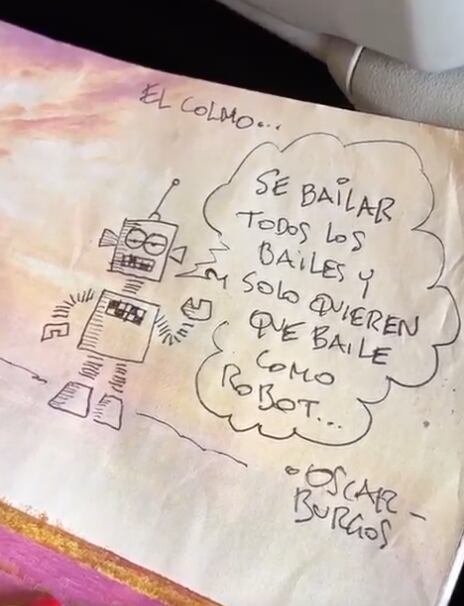 EL COLMO...
SE BAILAR
TODOS LOS
BAILES Y
SOLO QUIEREN
QUE BAILE
COMO
ROBOT...
OSCAR-
BURGOS